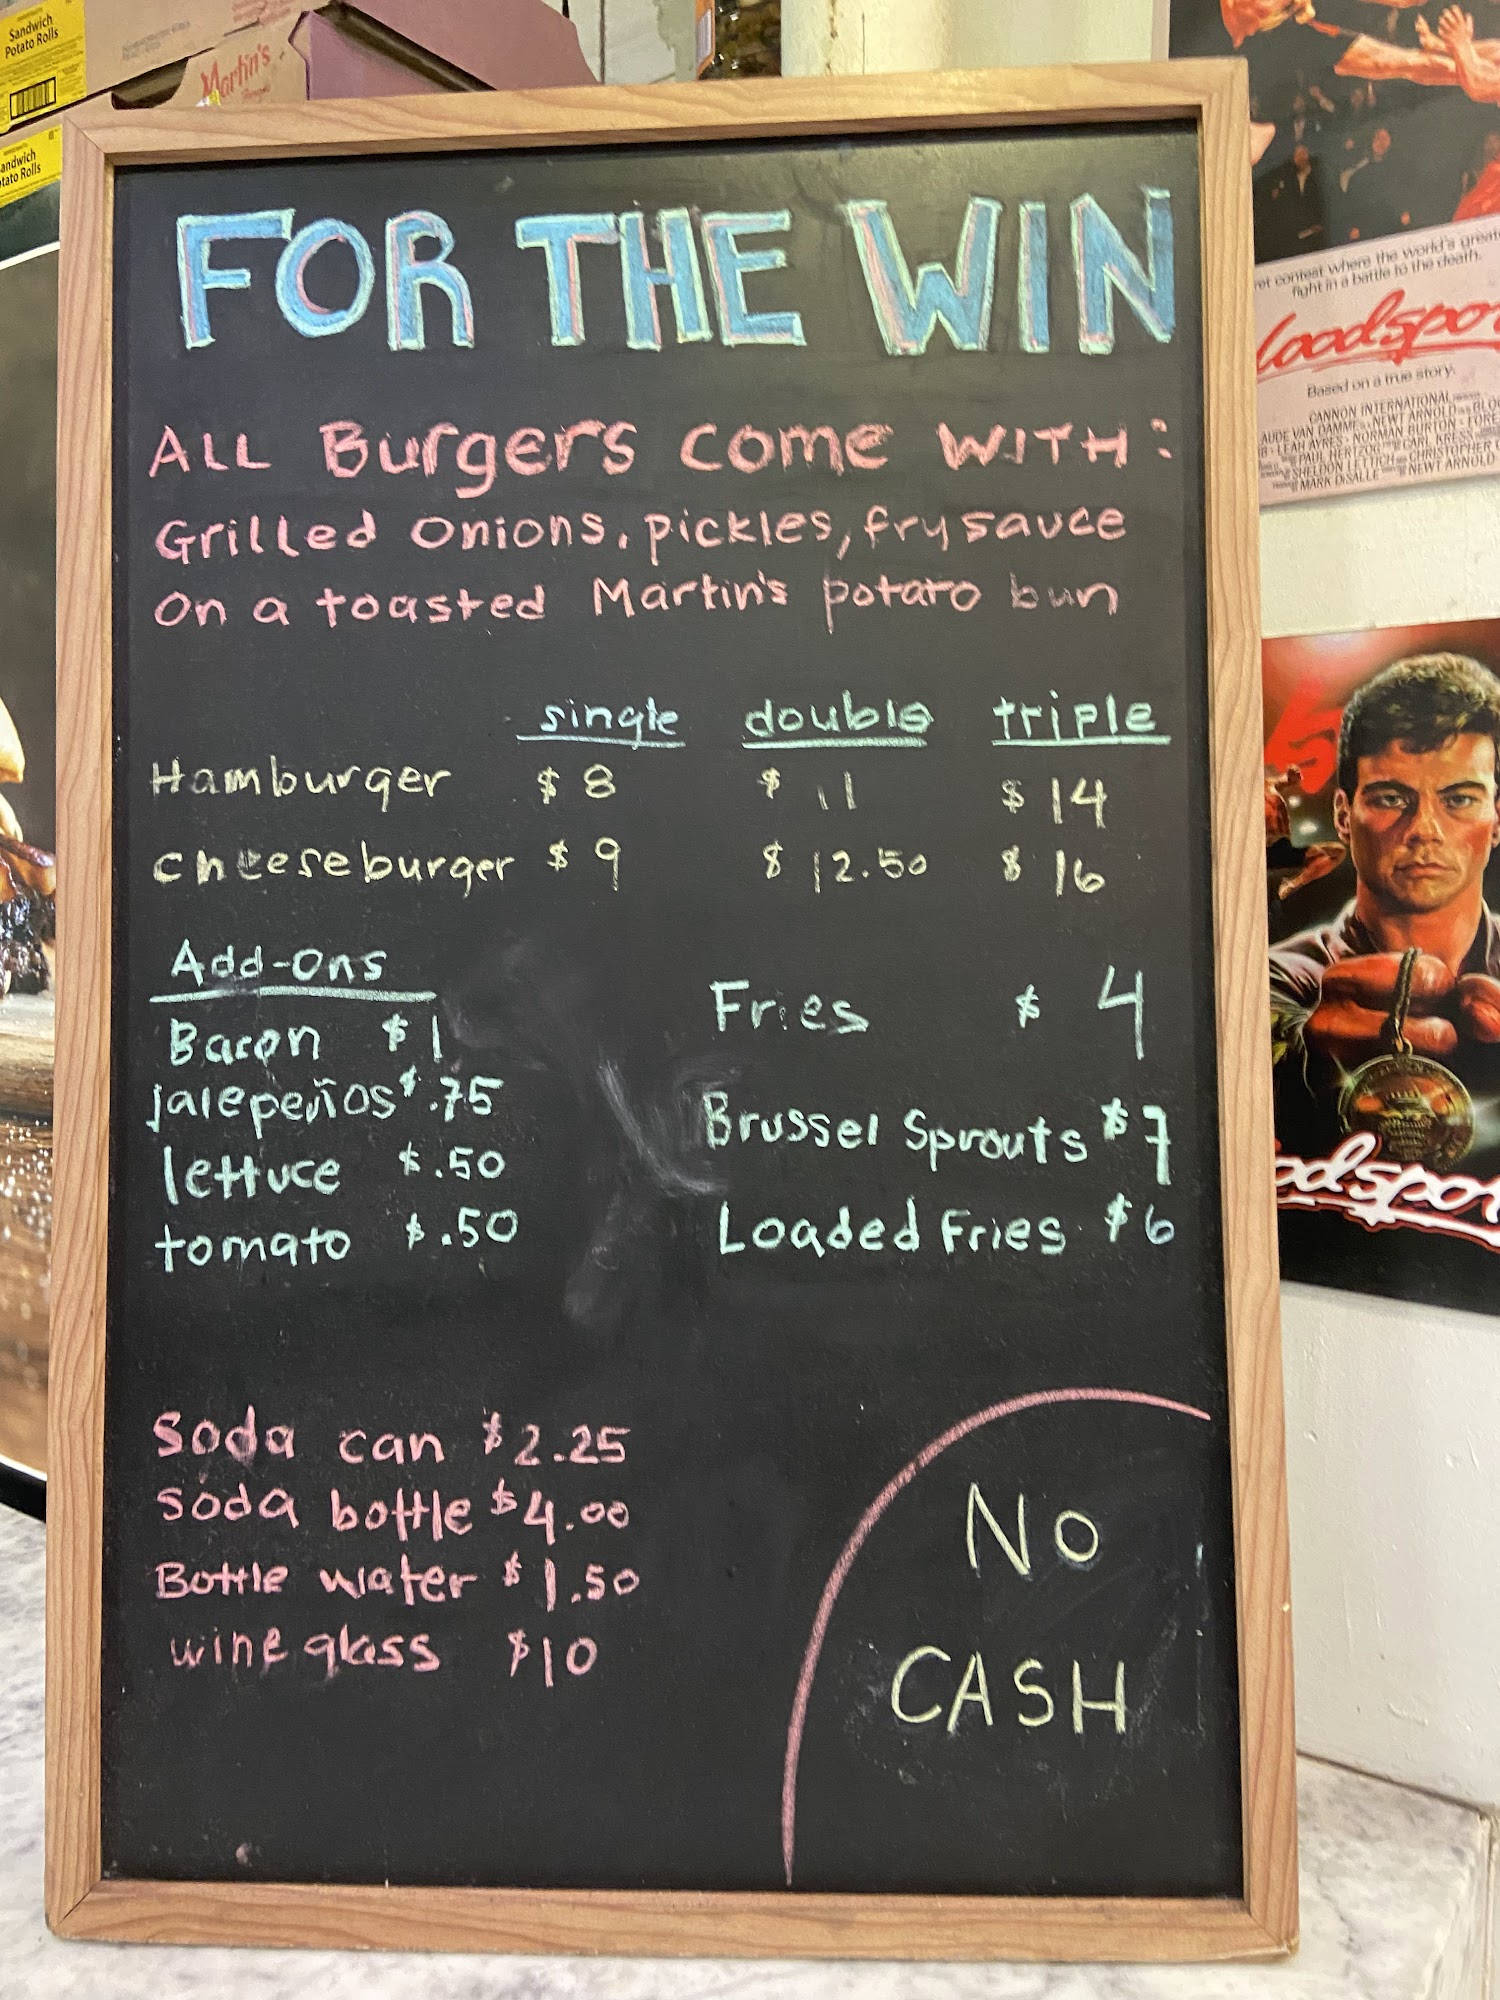 Sandwich
Potato Rolls
Martin's
Sandwich
Potato Rolls
FOR THE WIN
ALL Burgers come WITH:
Grilled onions, pickles, fry sauce
On a toasted Martin's potato bun
single double triple
Hamburger $8 $11 $14
cheeseburger $9 $12.50 $16
Add-Ons
Bacon $1
jalepeños $.75
lettuce $.50
tomato $.50
Fries $4
Brussel Sprouts $7
Loaded Fries $6
Soda can $2.25
Soda bottle $4.00
Bottle water $1.50
wine glass $10
NO
CASH
contest where the world's
fight in a battle to the death.
loodspor
Based on a true story.
CANNON INTERNATIONAL
AUDE VAN DAMME NEWT ARNOLD
LEAH AYRES · NORMAN BURTON
PAUL HERTZOG CARL KRESS
SHELDON LETTICH CHRISTOPHER
MARK DiSALLE NEWT ARNOLD
odspor